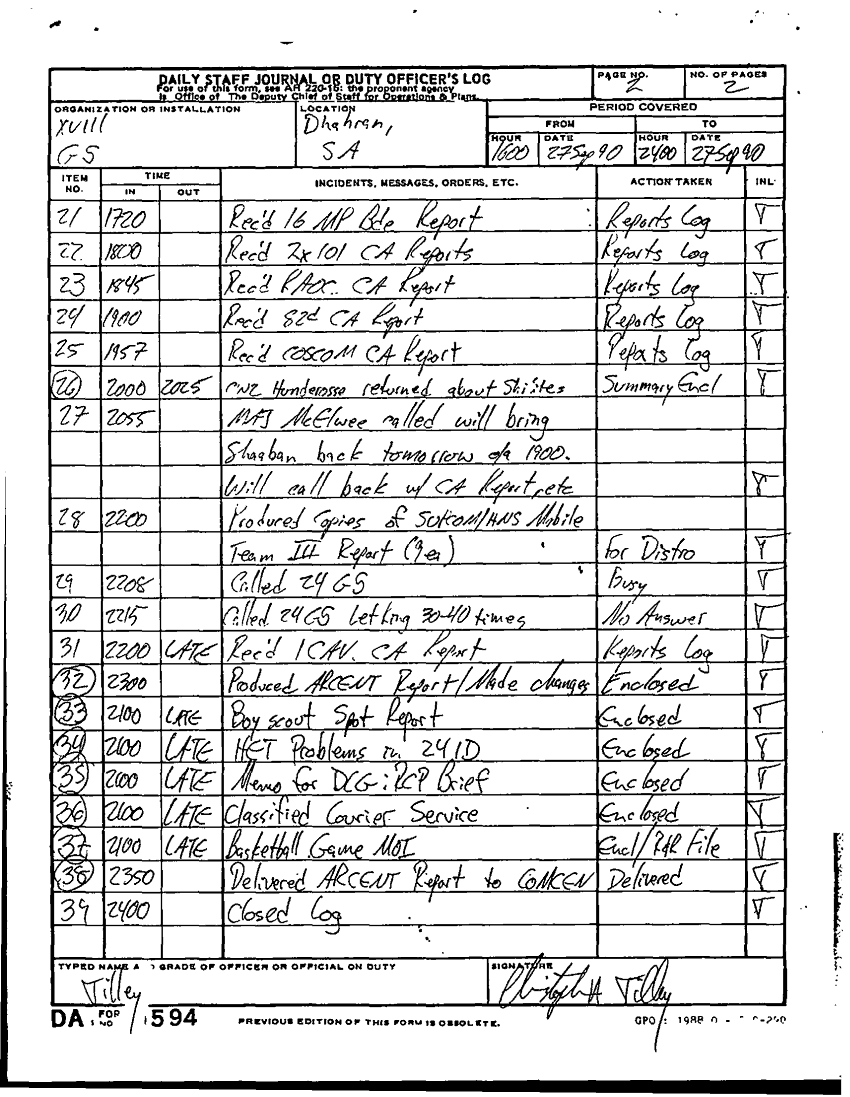 DAILY STAFF JOURNAL OR DUTY OFFICER'S LOG
For use of this form, see AR 220-15: the proponent agency
is Office of The Deputy Chief of Staff for Operations & Plans.
PAGE NO.
2
NO. OF PAGES
2
ORGANIZATION OR INSTALLATION
XVIII
G5
LOCATION
Dhahran,
SA
PERIOD COVERED
FROM TO
HOUR DATE HOUR DATE
1600 27Sep90 2400 27Sep90
ITEM NO. TIME IN OUT INCIDENTS, MESSAGES, ORDERS, ETC. ACTION TAKEN INL
21 1720 Rec'd 16 MP Bde Report Reports Log T
22 1800 Rec'd 2x101 CA Reports Reports Log T
23 1845 Rec'd RAOC CA Report Reports Log T
24 1900 Rec'd 82d CA Report Reports Log T
25 1957 Rec'd COSCOM CA Report Reports Log T
26 2000 2025 returned about Shiites Summary Encl T
27 2055 MAJ McElwee called will bring
Shaaban back tomorrow o/a 1900.
Will call back w/ CA Report, etc T
28 2200 Produced Copies of SUPCOM/HNS Mobile
Team III Report (9ea) For Distro T
29 2208 Called 24 G5 Busy T
30 2215 Called 24 G5 Letting 30-40 times No Answer T
31 2200 LATE Rec'd 1 CAV. CA Report Reports Log T
32 2300 Produced ARCENT Report/Made changes Enclosed T
33 2100 LATE Boy scout Spot Report Enclosed T
34 2100 LATE HET Problems in 24 ID Enclosed T
35 2100 LATE Memo for DCG: RCP Brief Enclosed T
36 2100 LATE Classified Courier Service Enclosed T
37 2100 LATE Basketball Game MOI Encl/R&R File T
38 2350 Delivered ARCENT Report to COMCEN Delivered T
39 2400 Closed Log T
TYPED NAME A GRADE OF OFFICER OR OFFICIAL ON DUTY
Tilley
SIGNATURE
Christoph A Tilley
DA FORM NO 1594
PREVIOUS EDITION OF THIS FORM IS OBSOLETE.
GPO : 1988 0 -